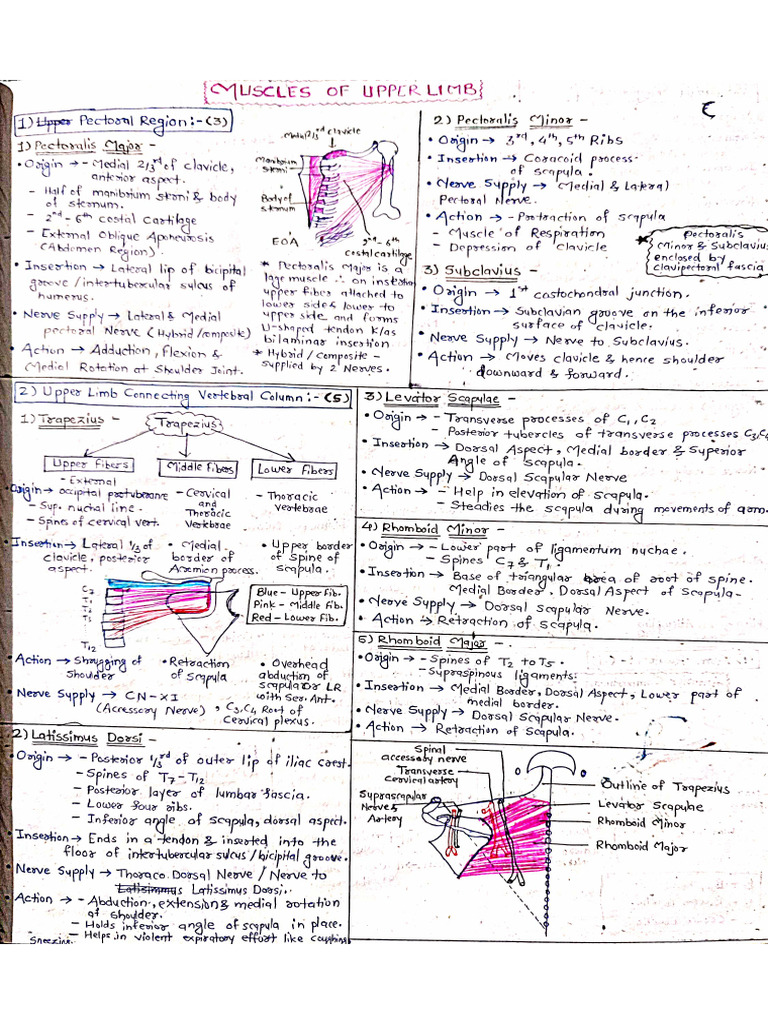 MUSCLES OF UPPER LIMB
1) Upper Pectoral Region:- (3)
1) Pectoralis Major -
• Origin → - Medial 2/3rd of clavicle,
anterior aspect.
- Half of manibrium strni & body
of sternum.
- 2nd - 6th costal cartilage
- External Oblique Aponeurosis
(Abdomen Region).
• Insertion → Lateral lip of bicipital
groove / intertubercular sulcus of
humerus.
• Nerve Supply → Lateral & Medial
pectoral Nerve (Hybrid/composite)
• Action → Adduction, Flexion &
Medial Rotation at Shoulder Joint.
Medial 2/3rd clavicle
Manibrium
Sterni
Body of
sternum
EOA
2nd - 6th
costal cartilage
* Pectoralis Major is a
lage muscle ∴ on insertion
upper fiber attached to
lower side & lower to
upper side and forms
U-shaped tendon k/as
bilaminar insertion
* Hybrid / Composite -
supplied by 2 Nerves.
2) Pectoralis Minor -
• Origin → 3rd, 4th, 5th Ribs
• Insertion → Coracoid process
of scapula.
• Nerve Supply → Medial & Lateral
Pectoral Nerve.
• Action → - Protraction of scapula
- Muscle of Respiration
- Depression of clavicle
* Pectoralis
Minor & Subclavius
enclosed by
clavipectoral fascia
3) Subclavius -
• Origin → 1st costochondral junction.
• Insertion → Subclavian groove on the inferior
surface of clavicle.
• Nerve Supply → Nerve to Subclavius.
• Action → Moves clavicle & hence shoulder
downward & forward.
2) Upper Limb Connecting Vertebral Column:- (5)
1) Trapezius -
Trapezius
Upper Fibers
Middle Fibers
Lower Fibers
Origin → - External
occipital protuberane
- Sup. nuchal line.
- Spines of cervical vert.
- Cervical
and
Thoracic
Vertebrae
- Thoracic
vertebrae
Insertion → Lateral 1/3 of
clavicle, posterior
aspect.
• Medial
border of
Acromion process.
• Upper border
of Spine of
Scapula.
C7
T12
Blue - Upper Fib.
Pink - Middle Fib.
Red - Lower Fib.
• Action → Shrugging of
Shoulder
• Retraction
of Scapula
• Overhead
abduction of
scapula or LR
with Ser. Ant.
• Nerve Supply → CN-XI
(Accessory Nerve), C3, C4 Root of
Cervical plexus.
2) Latissimus Dorsi -
• Origin → - Posterior 1/3rd of outer lip of iliac crest.
- Spines of T7 - T12
- Posterior layer of lumbar fascia.
- Lower four ribs.
- Inferior angle of scapula, dorsal aspect.
Insertion → Ends in a tendon & inserted into the
floor of intertubercular sulcus / bicipital groove.
Nerve Supply → Thoraco Dorsal Nerve / Nerve to
Latissimus Dorsi.
• Action → - Abduction, extension & medial rotation
at shoulder.
- Holds inferior angle of scapula in place.
- Helps in violent expiratory effort like coughing
Sneezing
3) Levator Scapulae -
• Origin → - Transverse processes of C1, C2
- Posterior tubercles of transverse processes C3, C4
• Insertion → Dorsal Aspect, Medial border & Superior
Angle of scapula.
• Nerve Supply → Dorsal Scapular Nerve
• Action → - Help in elevation of scapula.
- Steadies the scapula during movements of arm.
4) Rhomboid Minor -
• Origin → - Lower part of ligamentum nuchae.
- Spines C7 & T1.
• Insertion → Base of triangular area of root of spine.
Medial Border, Dorsal Aspect of Scapula.
• Nerve Supply → Dorsal Scapular Nerve.
• Action → Retraction of Scapula.
5) Rhomboid Major -
• Origin → - Spines of T2 to T5.
- Supraspinous ligaments.
• Insertion → Medial Border, Dorsal Aspect, Lower part of
medial border.
• Nerve Supply → Dorsal Scapular Nerve.
• Action → Retraction of Scapula.
Spinal
accessory nerve
Transverse
Cervical artery
Suprascapular
Nerve &
Artery
Outline of Trapezius
Levator Scapulae
Rhomboid Minor
Rhomboid Major